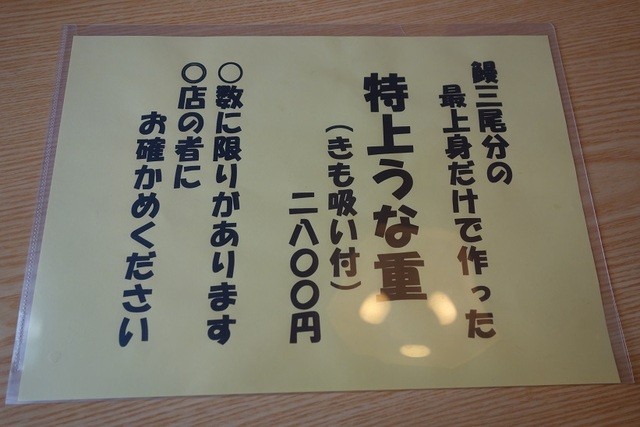 鰻三尾分の
最上身だけで作った
特上うな重
(きも吸い付)
二八〇〇円
〇数に限りがあります
〇店の者に
お確かめください